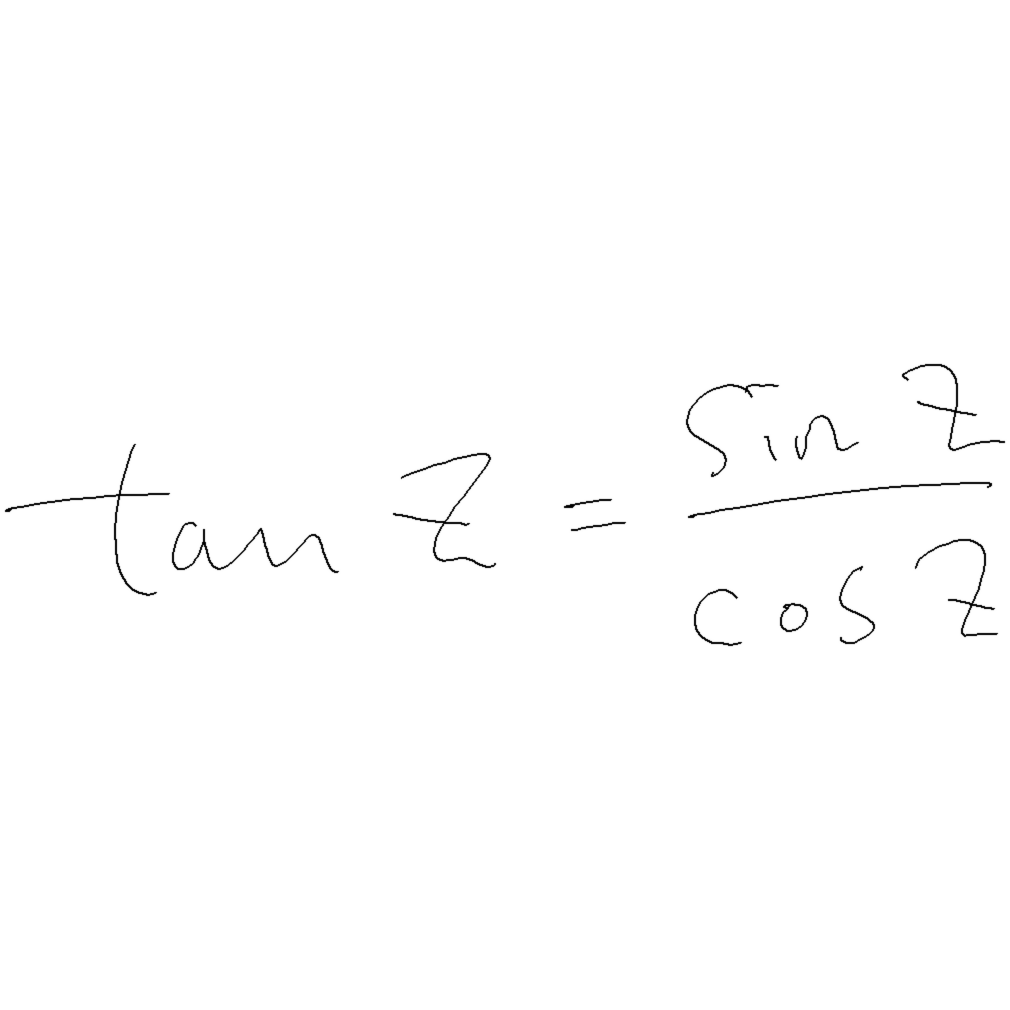 tan z = \frac{sin z}{cos z}